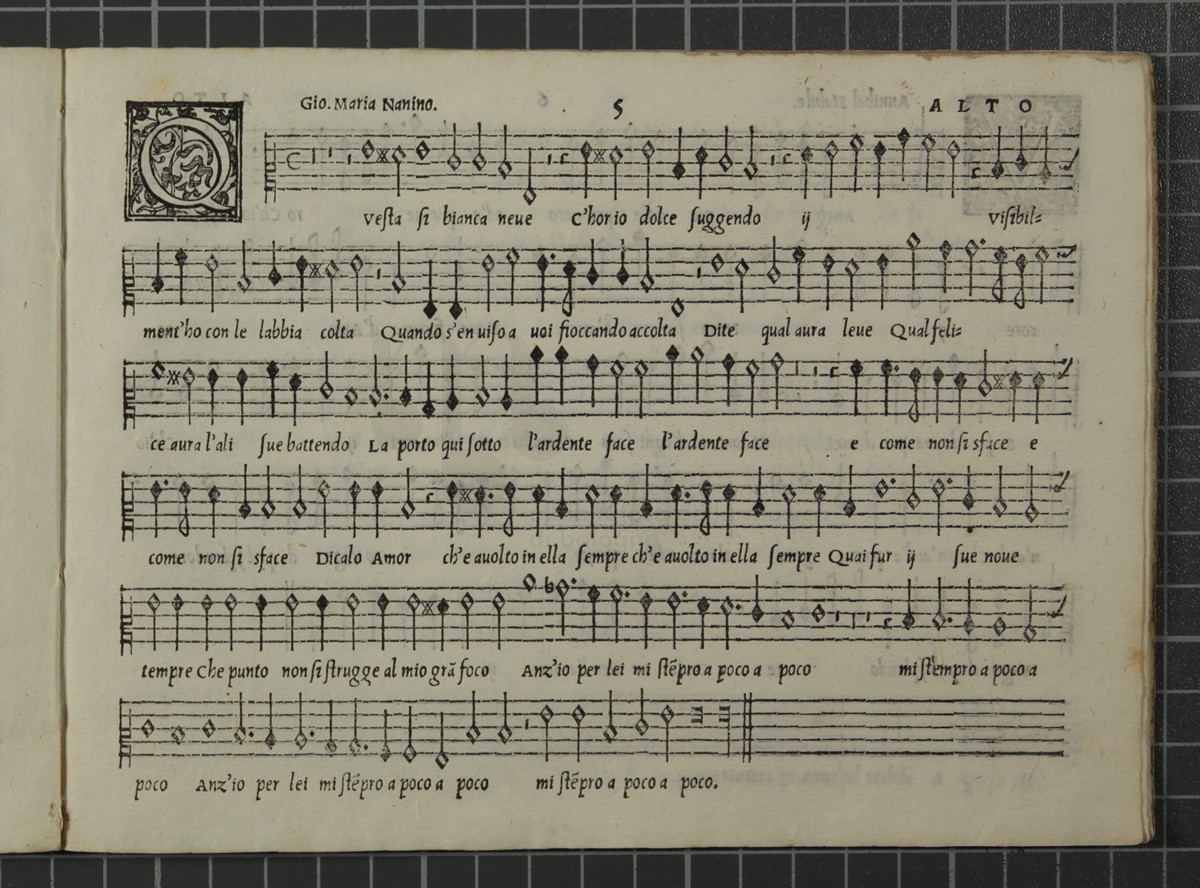 Gio. Maria Nanino. 5 ALTO
Q Vesta si bianca neue C'hor io dolce suggendo ij Visibil=
ment'ho con le labbia colta Quando s'en uiso a uoi fioccando accolta Dite qual aura leue Qual feli=
ce aura l'ali sue battendo La porto qui sotto l'ardente face l'ardente face e come non si sface e
come non si sface Dicalo Amor ch'e auolto in ella sempre ch'e auolto in ella sempre Quai fur ij sue noue
tempre Che punto non si strugge al mio grã foco Anz'io per lei mi stẽpro a poco a poco mi stempro a poco a
poco Anz'io per lei mi stẽpro a poco a poco mi stẽpro a poco a poco.